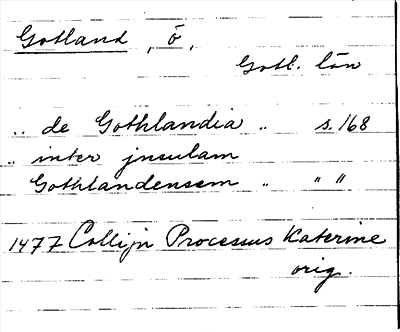 Gotland, ö,
Gotl. län
.. de Gothlandia .. s. 168
.. inter jnsulam
Gothlandensem .. " "
1477 Collijn Processus Katerine
orig.